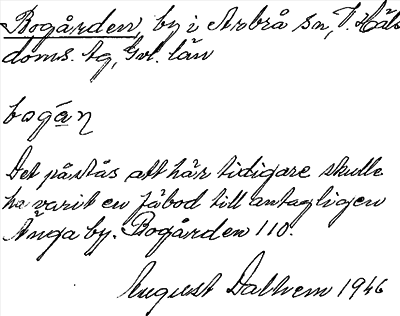 Bogården, by i Arbrå sn, V. Häls
doms. tg, Gvl. län
bogán
Det påstås att här tidigare skulle
ha varit en fäbod till antagligen
Änga by. Bogården 110.
August Dalhem 1946